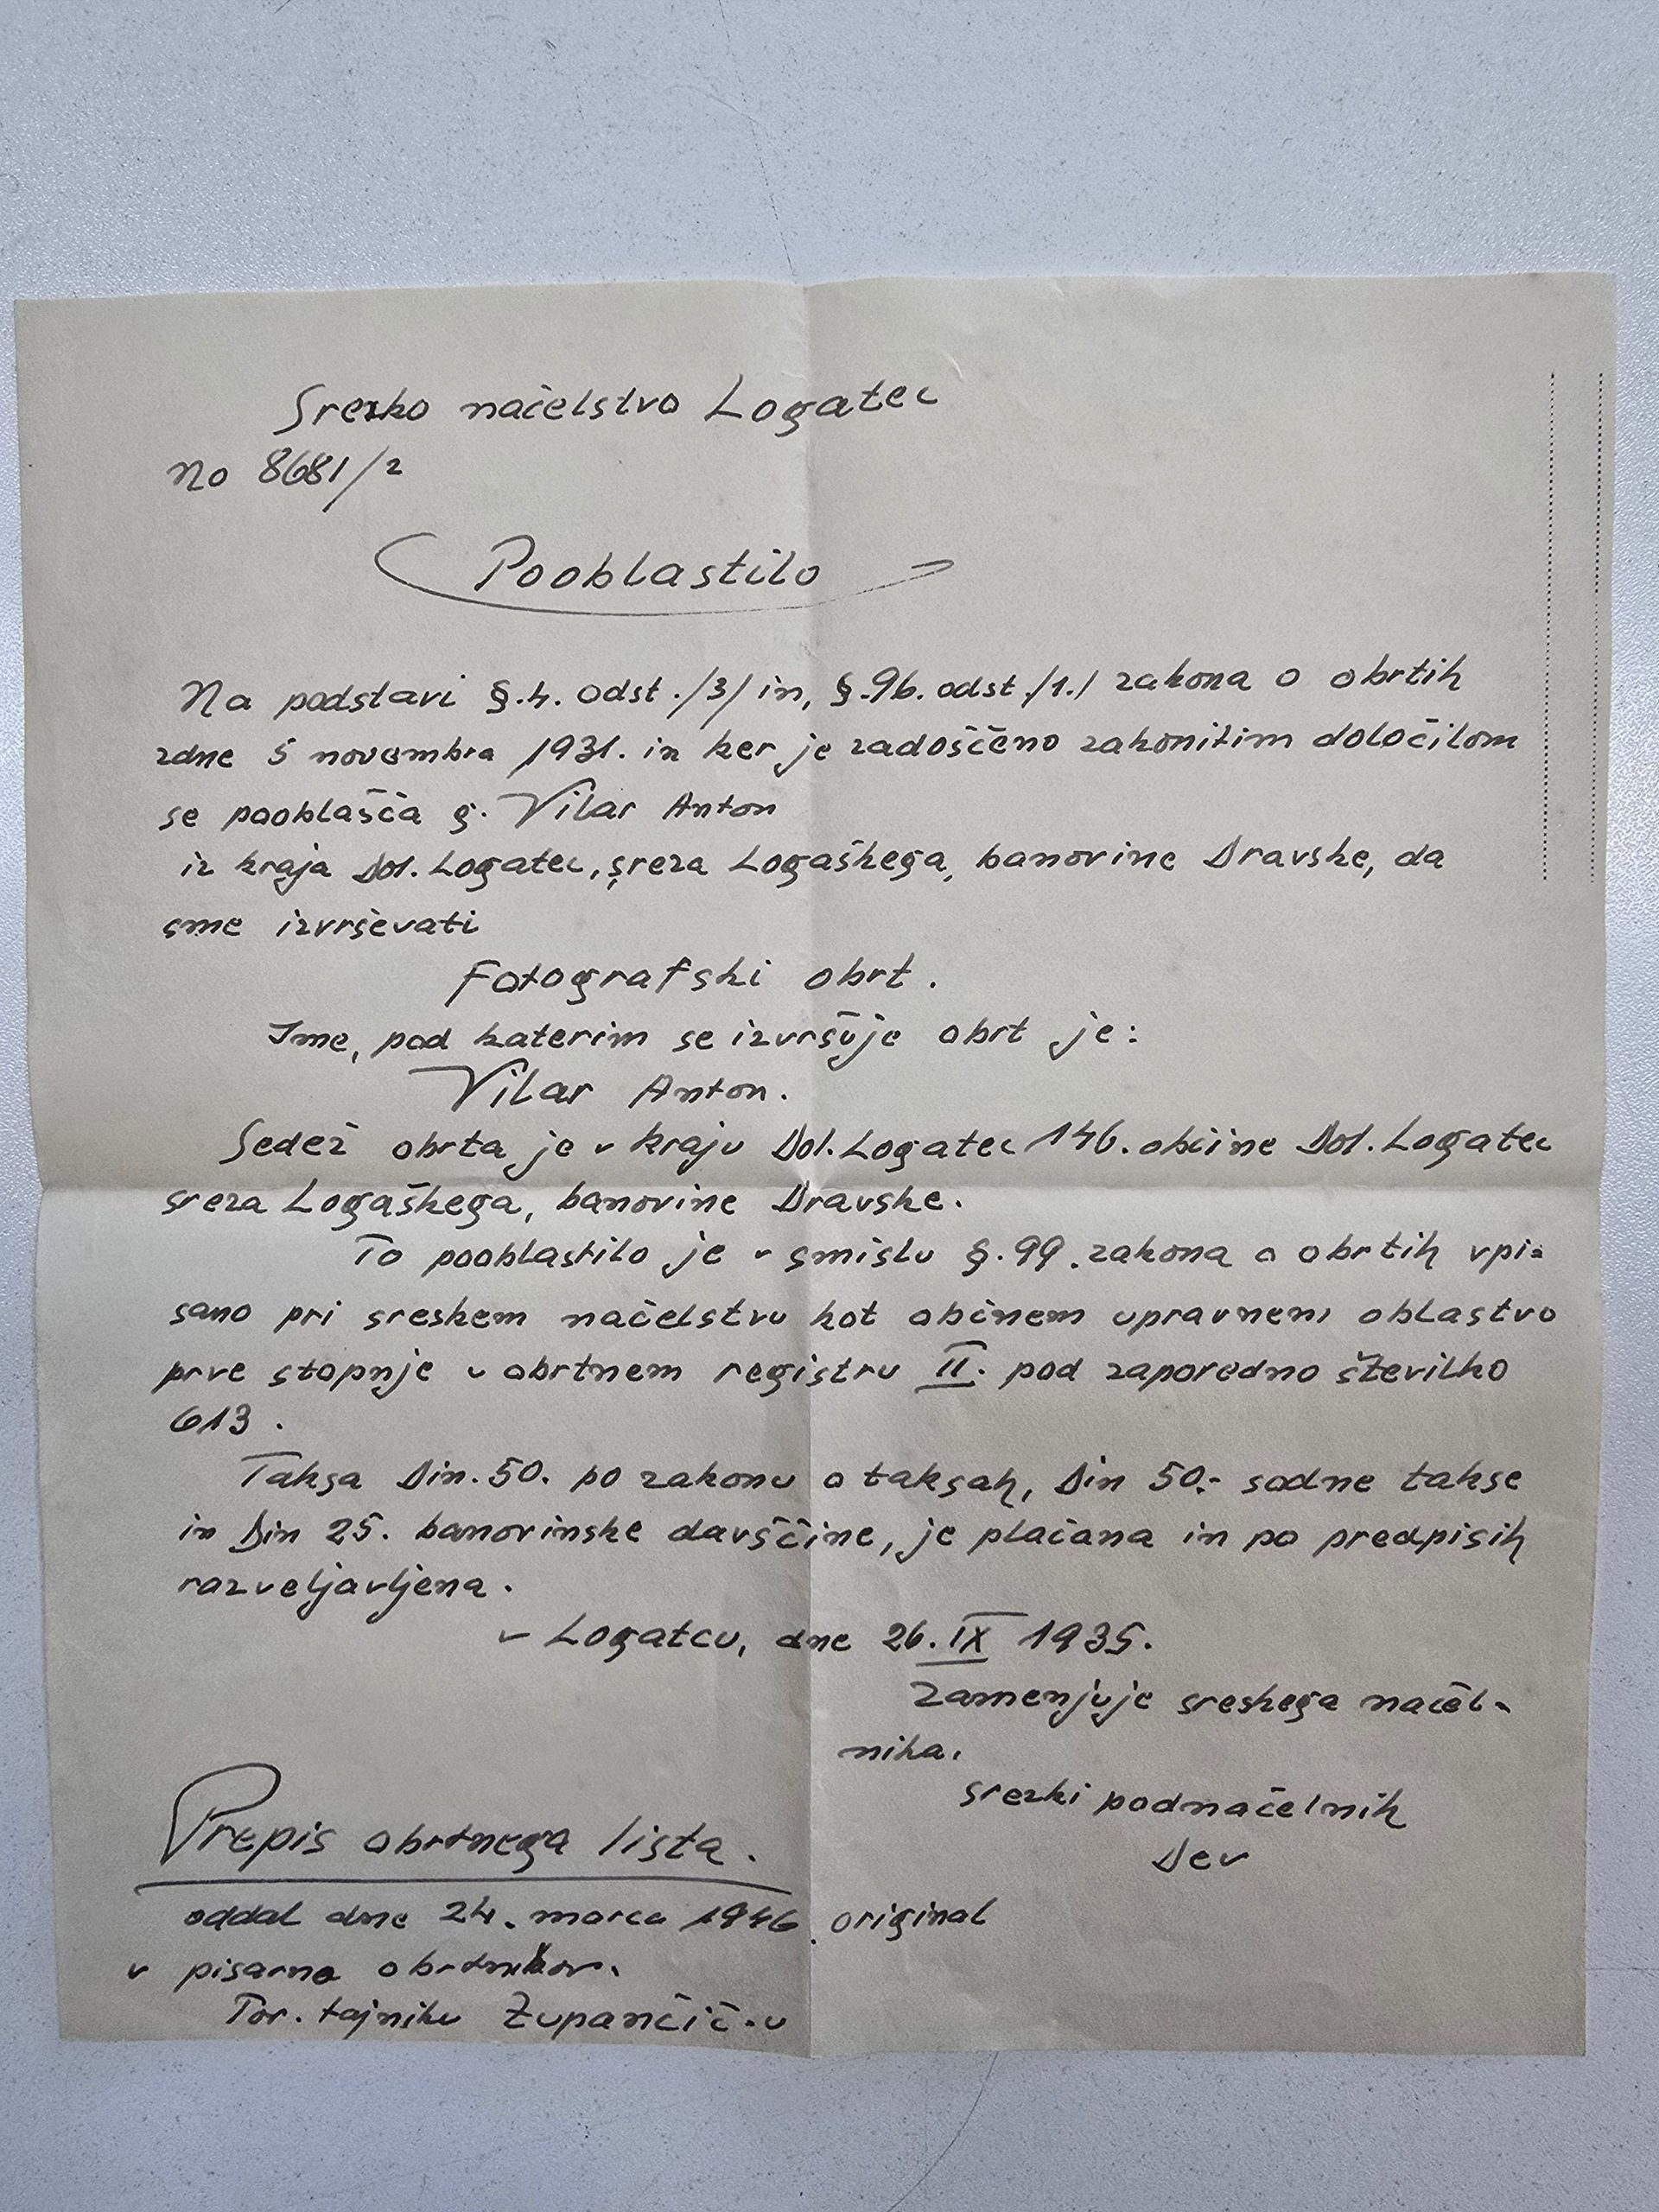 Srezko načelstvo Logatec
No 8681/2
Pooblastilo
Na podstavi §.4. odst./3/ in, §.96. odst./1./ zakona o obrtih
zdne 5 novembra 1931. in ker je zadoščeno zakonitim določilom
se pooblašča g. Vilar Anton
iz kraja Dol. Logatec, sreza Logaškega, banovine Dravske, da
sme izvrševati
Fotografski obrt.
Ime, pod katerim se izvršuje obrt je:
Vilar Anton.
Sedež obrta je v kraju Dol. Logatec 146. občine Dol. Logatec
sreza Logaškega, banovine Dravske.
To pooblastilo je v smislu §.99. zakona o obrtih vpi=
sano pri sreskem načelstvu kot občnem upravnem oblastvo
prve stopnje v obrtnem registru II. pod zaporedno številko
613.
Taksa Din. 50. po zakonu o taksah, Din 50.- sodne takse
in Din 25. banovinske davščine, je plačana in po predpisih
razveljavljena.
v Logatcu, dne 26. IX 1935.
Zamenjuje sreskega načel-
nika.
srezki podnačelnik
Dev
Prepis obrtnega lista.
oddal dne 24. marca 1946. original
v pisarno obrtnikov.
Tov. tajniku Zupančič-u